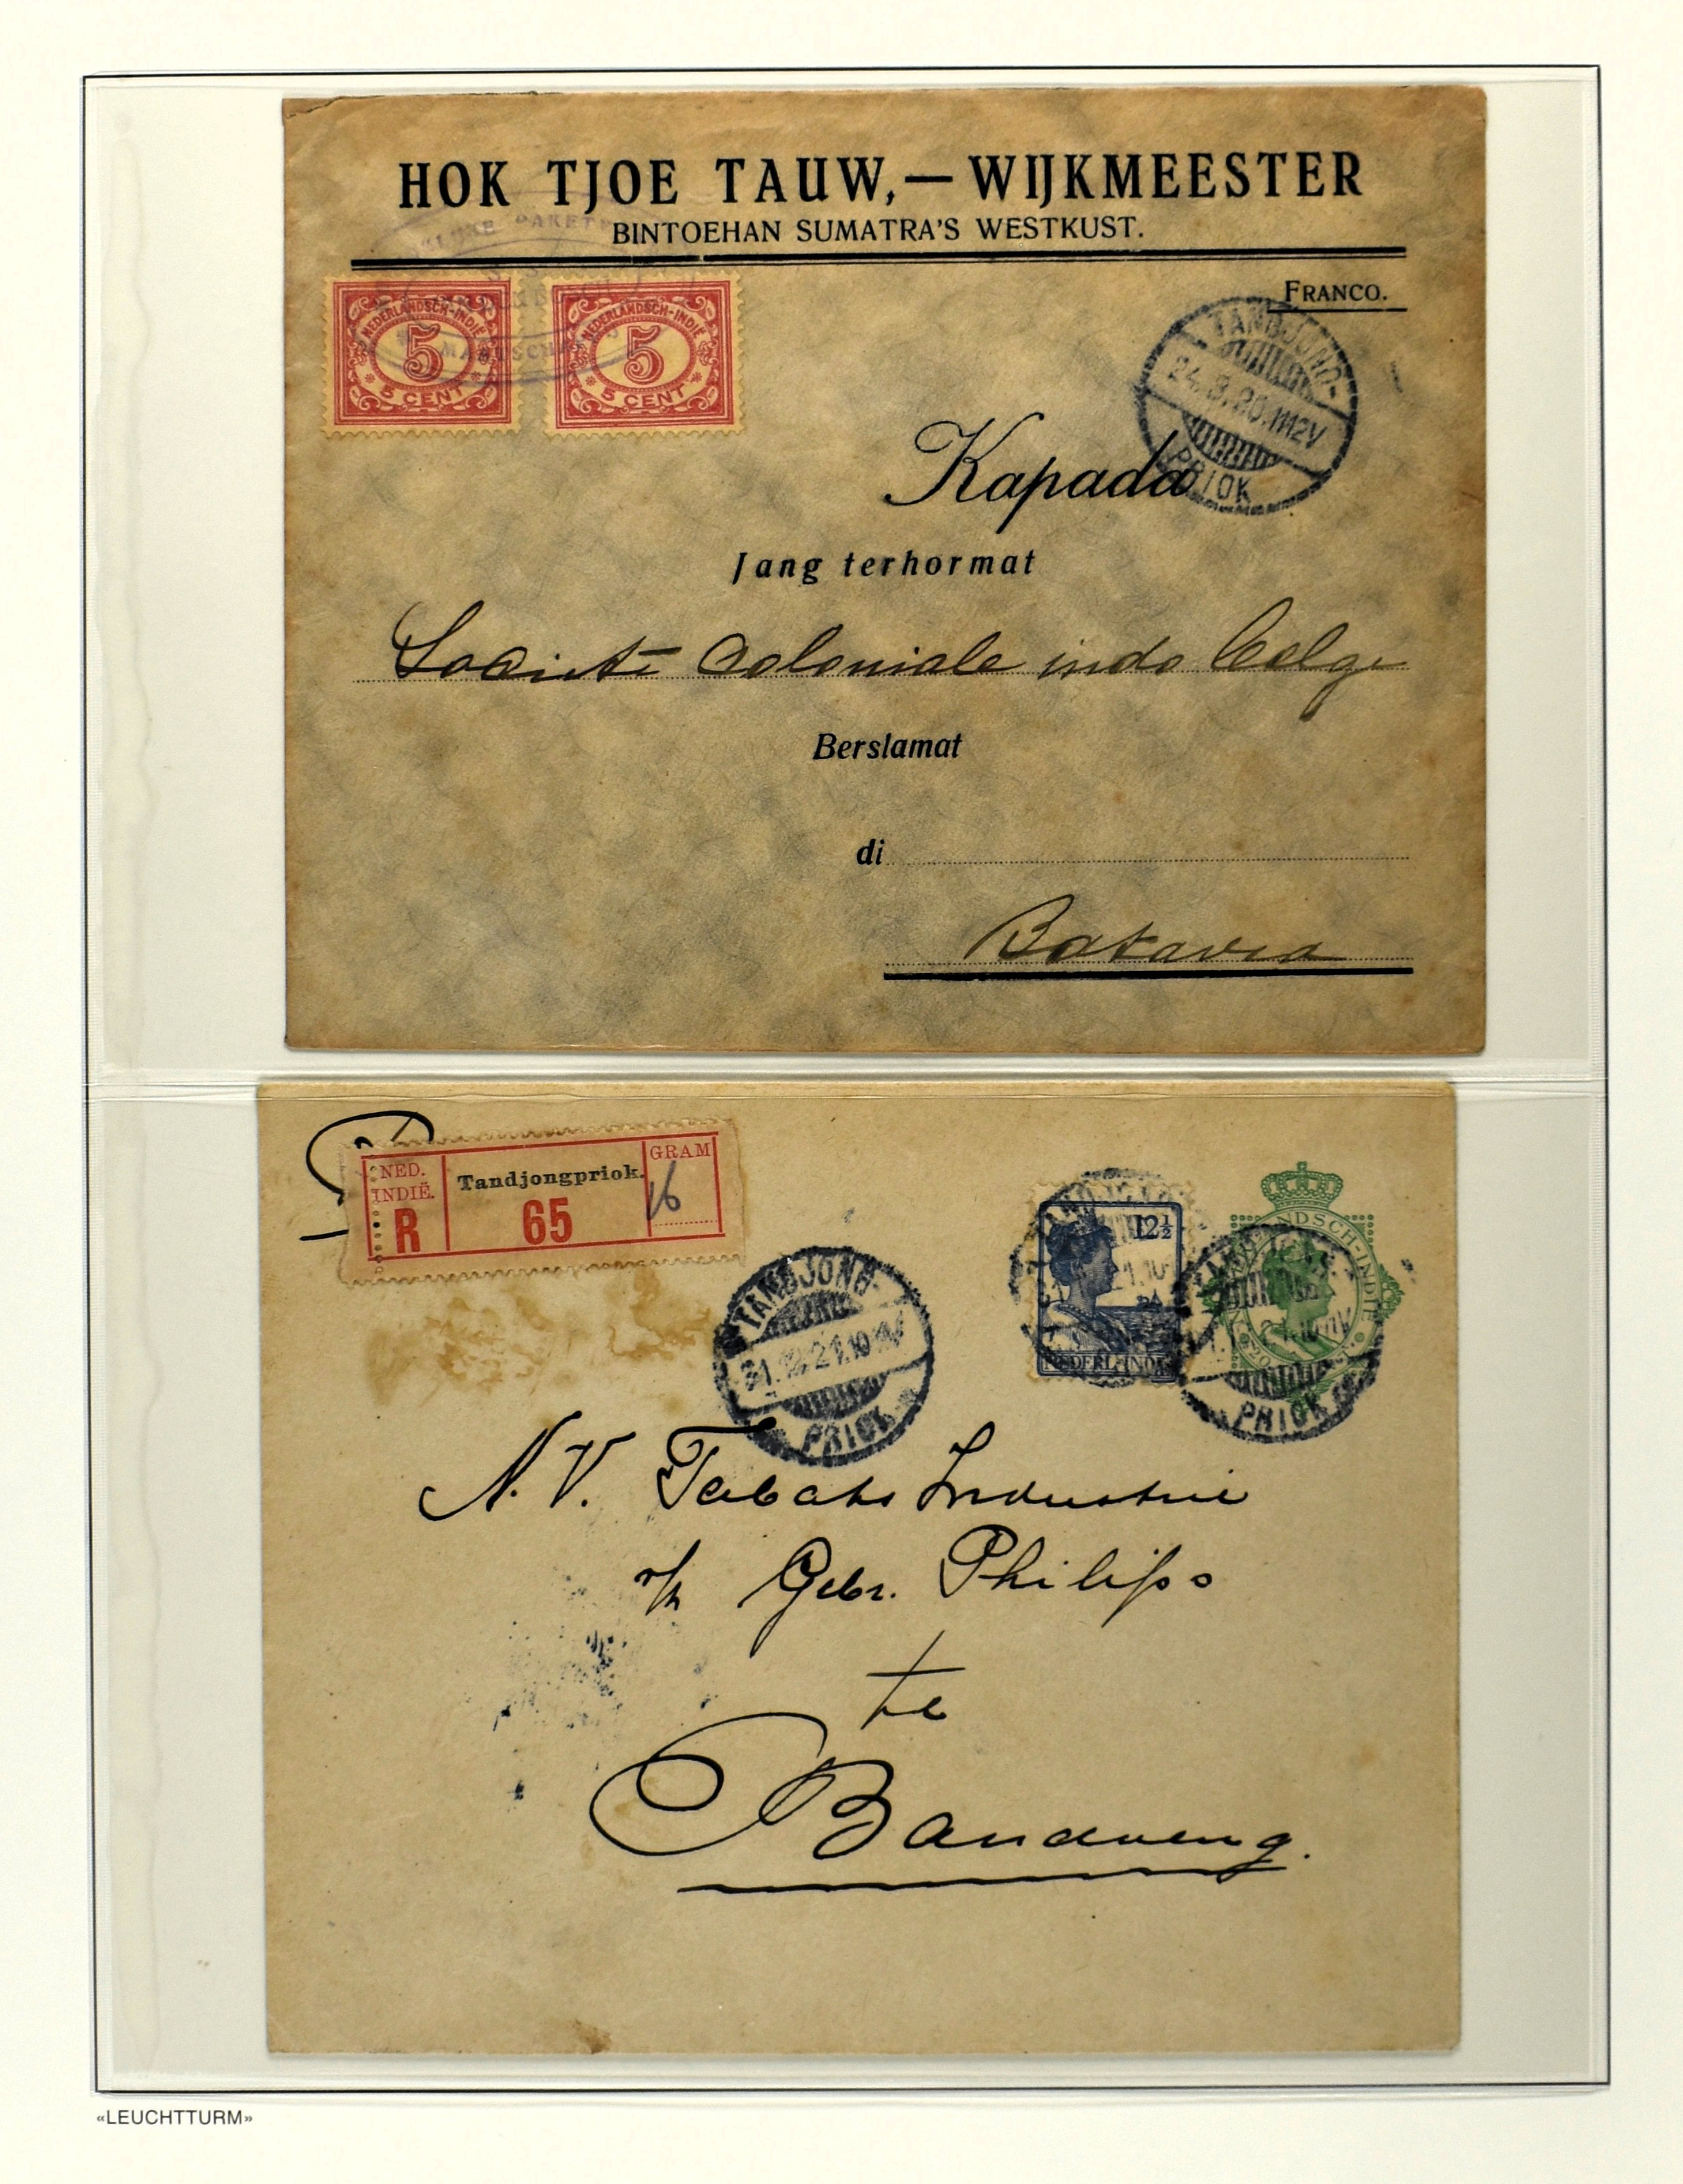 HOK TJOE TAUW,— WIJKMEESTER
BINTOEHAN SUMATRA'S WESTKUST.
FRANCO.
NEDERLANDSCH-INDIË
5
5 CENT
NEDERLANDSCH-INDIË
5
5 CENT
TANDJONG-
24.8.20.11-12V
PRIOK
Kapada
Jang terhormat
Societe Coloniale indo belge
Berslamat
di
Batavia
NED.
INDIË.
R
Tandjongpriok.
65
GRAM
16
TANDJONG-
31.12.21.10-11V
PRIOK
12½
NEDERL-INDIË
PRIOK
N.V. Tabaks Industrie
v/h Gebr. Philips
te
Bandoeng.
«LEUCHTTURM»